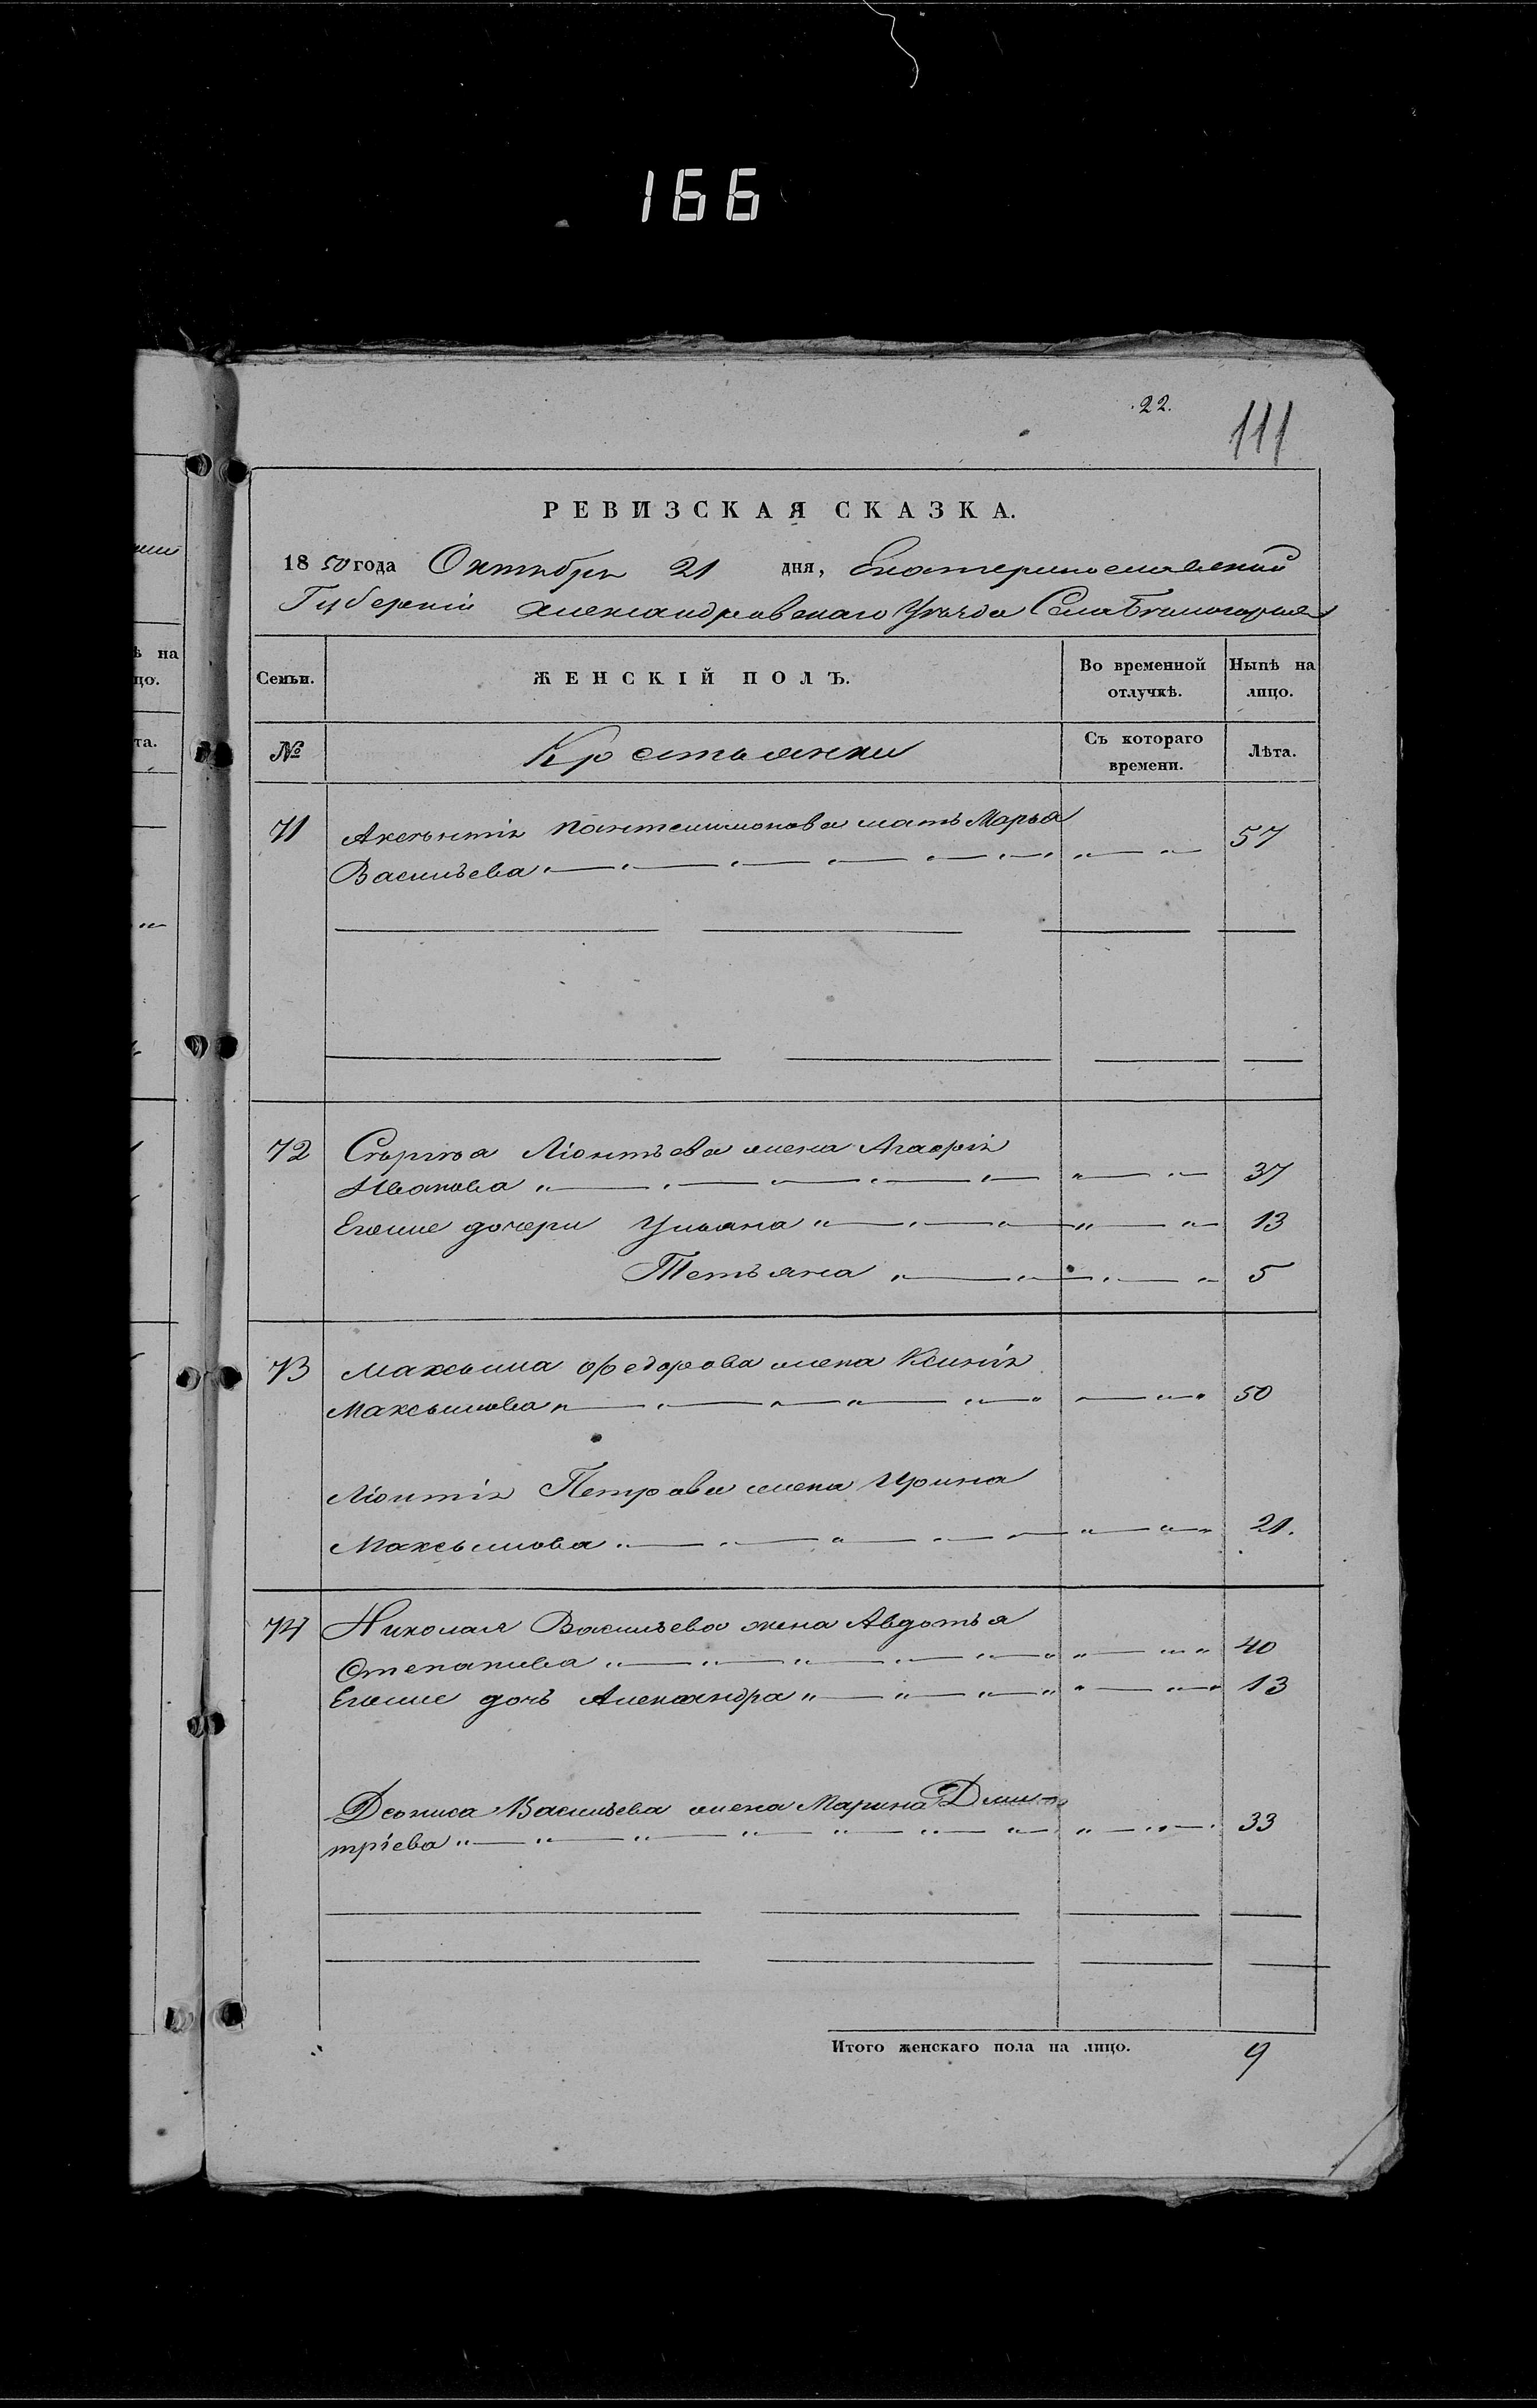 166
22.
111
РЕВИЗСКАЯ СКАЗКА.
1850 года Октября 21 дня, Екатеринославской
Губерніи Александровскаго Уѣзда Села Бѣлогорья
ѣ на
цо.
та.
Семьи. ЖЕНСКІЙ ПОЛЪ. Во временной отлучкѣ. Нынѣ на лицо.
№ Крестьянки Съ котораго времени. Лѣта.
71 Аксентія Пантелимонова мать Марья
Васильева 57
72 Сергѣя Ліонтьева жена Агафія
Иванова 37
Егоже дочери Ульяна 13
Тетьяна 5
73 Максыма Федорова жена Ксинія
Максымова 50
Ліонтія Петрова жена Ирина
Максымова 21.
74 Николая Васильева жена Авдотья
Степанова 40
Егоже дочь Александра 13
Деониса Васильева жена Марина Дми-
тріева 33
Итого женскаго пола на лицо. 9